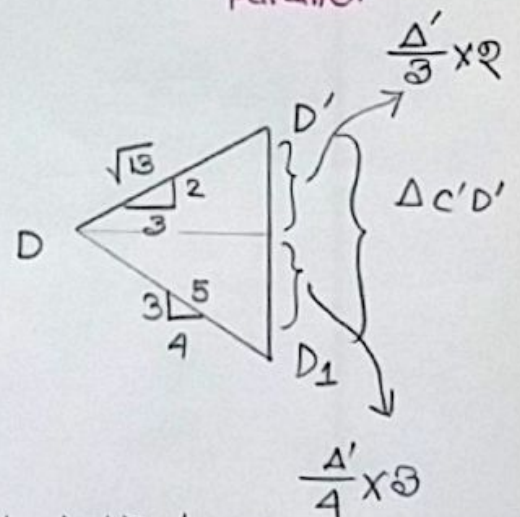 Δ'/3 ×২
D'
√13
2
3
Δ C'D'
D
3 5
4
D1
Δ'/4 ×৩